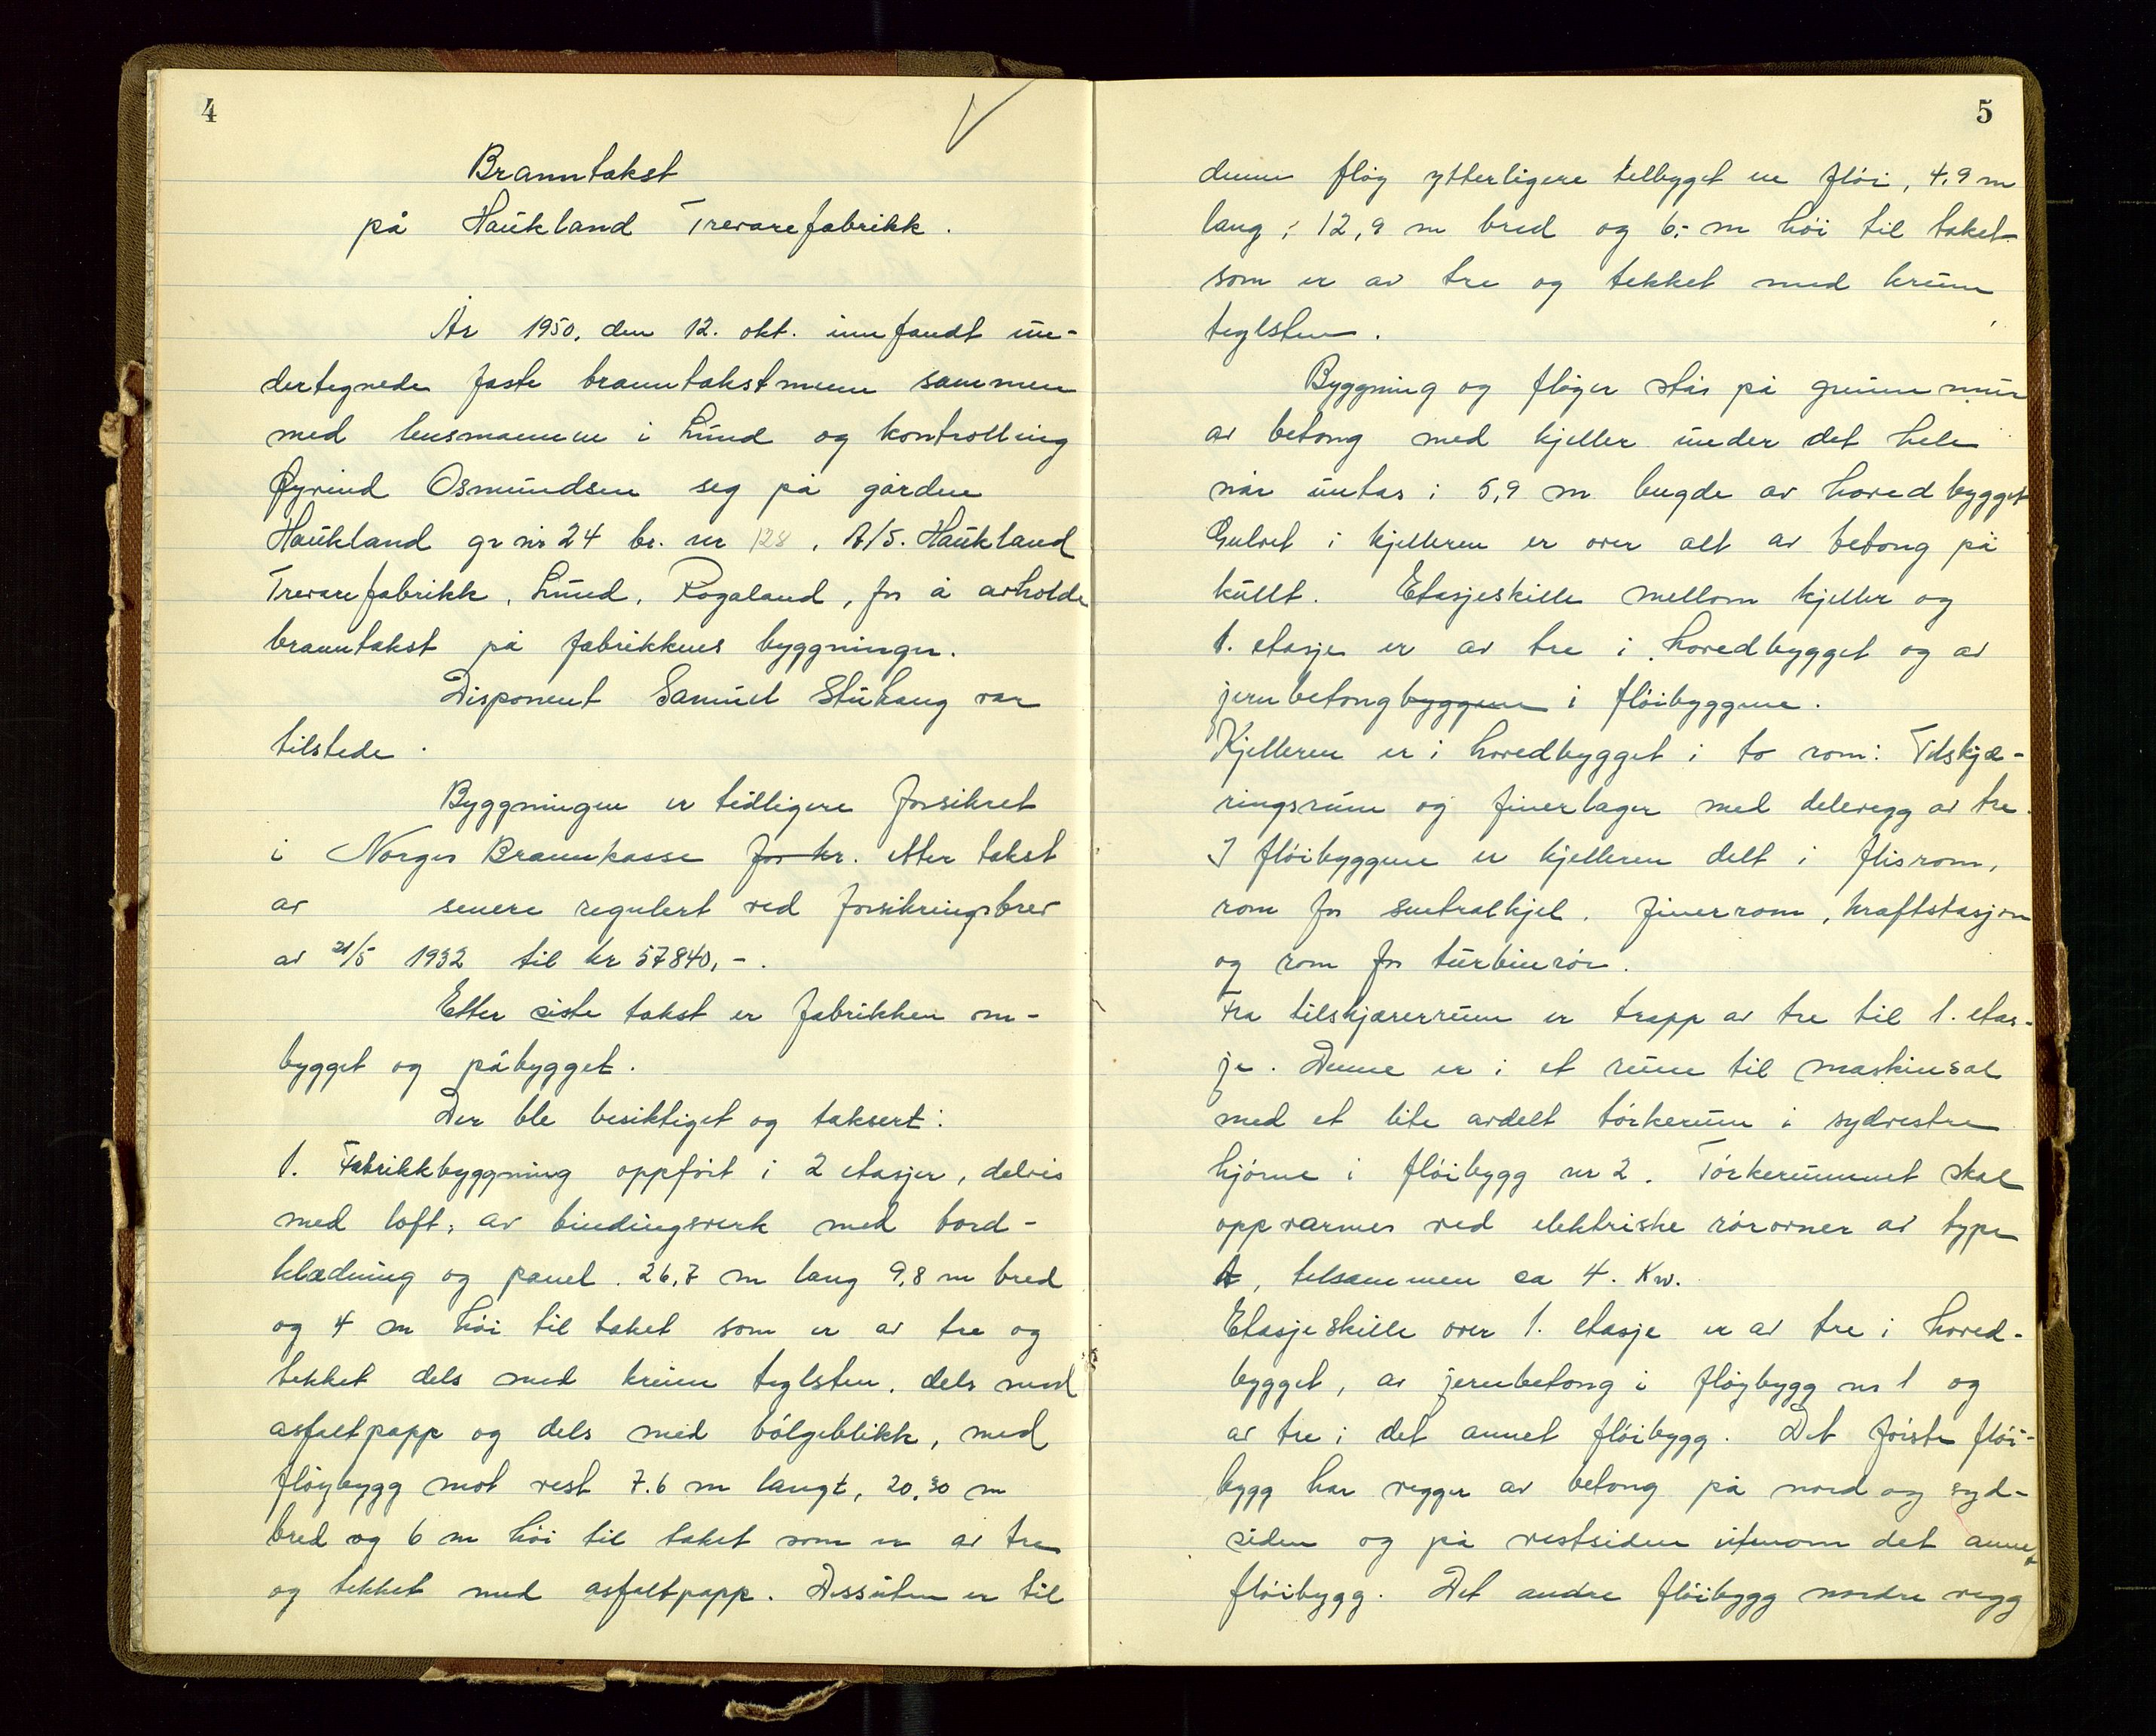 4
Branntakst
på Haukland Trevarefabrikk.
År 1950, den 12. okt. innfandt un-
dertegnede faste branntakstmenn sammen
med lensmannen i Lund og kontrolling
Øyvind Osmundsen seg på gården
Haukland gr nr 24 br. nr 128, A/S. Haukland
Trevarefabrikk, Lund, Rogaland, for å avholde
branntakst på fabrikkens byggninger.
Disponent Samuel Stuhaug var
tilstede.
Byggningen er tidligere forsikret
i Norges Brannkasse for kr. etter takst
av senere regulert ved forsikringsbrev
av 21/5 1932 til kr 57840,-.
Etter siste takst er fabrikken om-
bygget og påbygget.
Der ble besiktiget og taksert:
1. Fabrikkbyggning oppført i 2 etasjer, delvis
med loft, av bindingsverk med bord-
klædning og panel. 26,7 m lang 9,8 m bred
og 4 m høi til taket som er av tre og
tekket dels med krum teglsten, dels med
asfaltpapp og dels med bølgeblikk, med
fløybygg mot vest 7.6 m langt, 20,30 m
bred og 6 m høi til taket som er av tre
og tekket med asfaltpapp. Dessuten er til
5
denne fløy ytterligere tilbygget en fløi, 4,9 m
lang, 12,9 m bred og 6,- m høi til taket
som er av tre og tekket med krum
teglsten.
Byggning og fløyer står på grunnmur
av betong med kjeller under det hele
når untas i 5,9 m lengde av hovedbygget
Gulvet i kjelleren er over alt av betong på
kult. Etasjeskille mellom kjeller og
1. etasje er av tre i hovedbygget og av
jernbetongbyggene i fløibyggene.
Kjelleren er i hovedbygget i to rom: Tilskjæ-
ringsrum og finerlager med delevegg av tre.
I fløibyggene er kjelleren delt i flisrom,
rom for sentralkjel, finerrom, kraftstasjon
og rom for turbinrør.
Fra tilskjærerrum er trapp av tre til 1. etas-
je. Denne er i et rum til maskinsal
med et lite avdelt tørkerum i sydvestre
hjørne i fløibygg nr 2. Tørkerummet skal
oppvarmes ved elektriske rørovner av type
A, tilsammen ca 4. Kw.
Etasjeskille over 1. etasje er av tre i hoved-
bygget, av jernbetong i fløybygg nr 1 og
av tre i det annet fløibygg. Det første fløi-
bygg har vegger av betong på nord og syd-
siden og på vestsiden utenom det annet
fløibygg. Det andre fløibygg nordre vegg